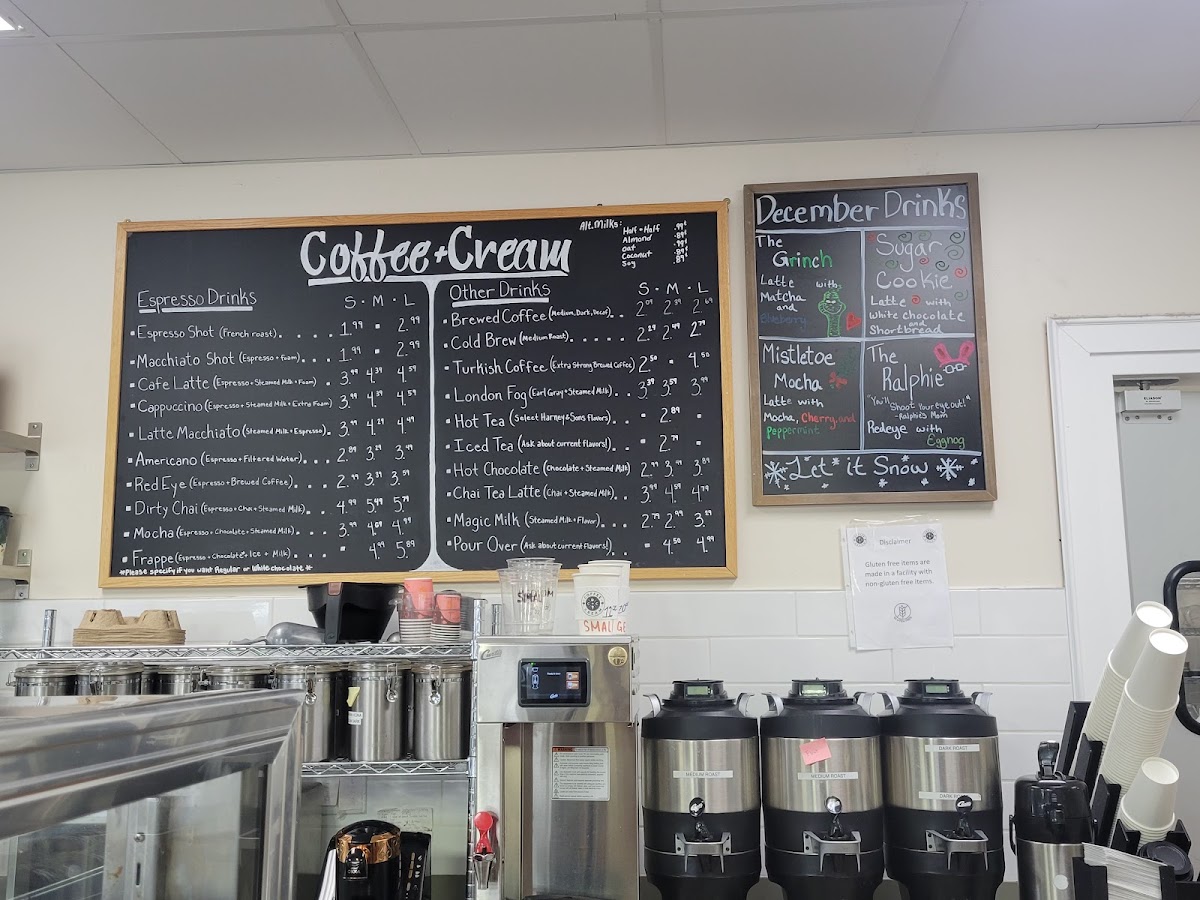 Coffee + Cream
Alt. Milks:
Half + Half .99¢
Almond .89¢
Oat .99¢
Coconut .89¢
Soy .89¢
Espresso Drinks
S · M · L
Espresso Shot (French roast) . . . . . 1.99 · 2.99
Macchiato Shot (Espresso + Foam) . . . 1.99 · 2.99
Cafe Latte (Espresso + Steamed Milk + Foam) . 3.99 4.39 4.59
Cappuccino (Espresso + Steamed Milk + Extra Foam) 3.99 4.39 4.59
Latte Macchiato (Steamed Milk + Espresso) . 3.99 4.29 4.49
Americano (Espresso + Filtered Water) . . . 2.89 3.29 3.49
Red Eye (Espresso + Brewed Coffee) . . . 2.99 3.39 3.59
Dirty Chai (Espresso + Chai + Steamed Milk) . . 4.99 5.49 5.79
Mocha (Espresso + Chocolate + Steamed Milk) . . 3.99 4.69 4.99
Frappe (Espresso + Chocolate + Ice + Milk) . . . 4.99 5.89
*Please specify if you want Regular or White chocolate *
Other Drinks
S · M · L
Brewed Coffee (Medium, Dark, Decaf) . . 2.09 2.39 2.69
Cold Brew (Medium Roast) . . . . . 2.29 2.49 2.79
Turkish Coffee (Extra Strong Brewed Coffee) 2.50 · 4.50
London Fog (Earl Gray + Steamed Milk) . . 3.39 3.59 3.99
Hot Tea (Select Harney + Sons Flavors) . . 2.89
Iced Tea (Ask about current Flavors!) . . 2.79
Hot Chocolate (Chocolate + Steamed Milk) 2.99 3.49 3.89
Chai Tea Latte (Chai + Steamed Milk) . . 3.99 4.59 4.79
Magic Milk (Steamed Milk + Flavor) . . . 2.79 2.99 3.89
Pour Over (Ask about current Flavors!) . . 4.50 4.99
December Drinks
The
Grinch
Latte with
Matcha
and
Blueberry
Sugar
Cookie
Latte with
white chocolate
and
Shortbread
Mistletoe
Mocha
Latte with
Mocha, Cherry, and
Peppermint
The
Ralphie
"You'll shoot your eye out!"
-Ralphie's Mom
Redeye with
Eggnog
Let it Snow
Disclaimer
Gluten free items are
made in a facility with
non-gluten free items.
SMALL
MEDIUM ROAST
MEDIUM ROAST
DARK ROAST